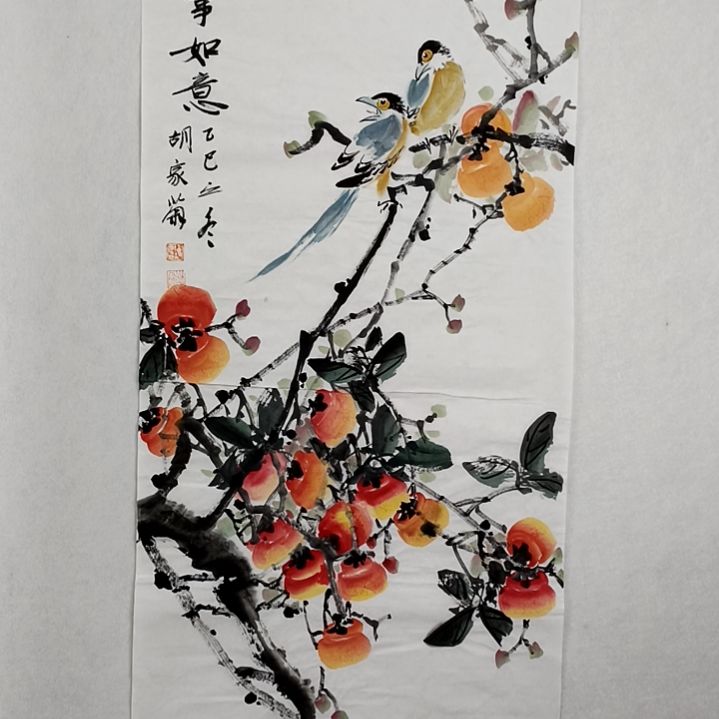 事如意
乙巳之冬
胡家萧